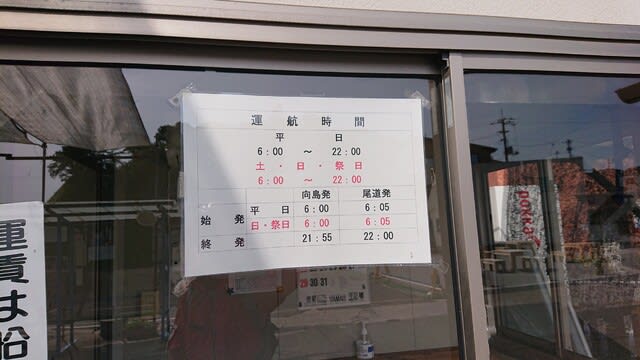 運航時間
平日
6:00 ～ 22:00
土・日・祭日
6:00 ～ 22:00
向島発 尾道発
始発 平日 6:00 6:05
日・祭日 6:00 6:05
終発 21:55 22:00
運賃は船
pokka
29 30 31